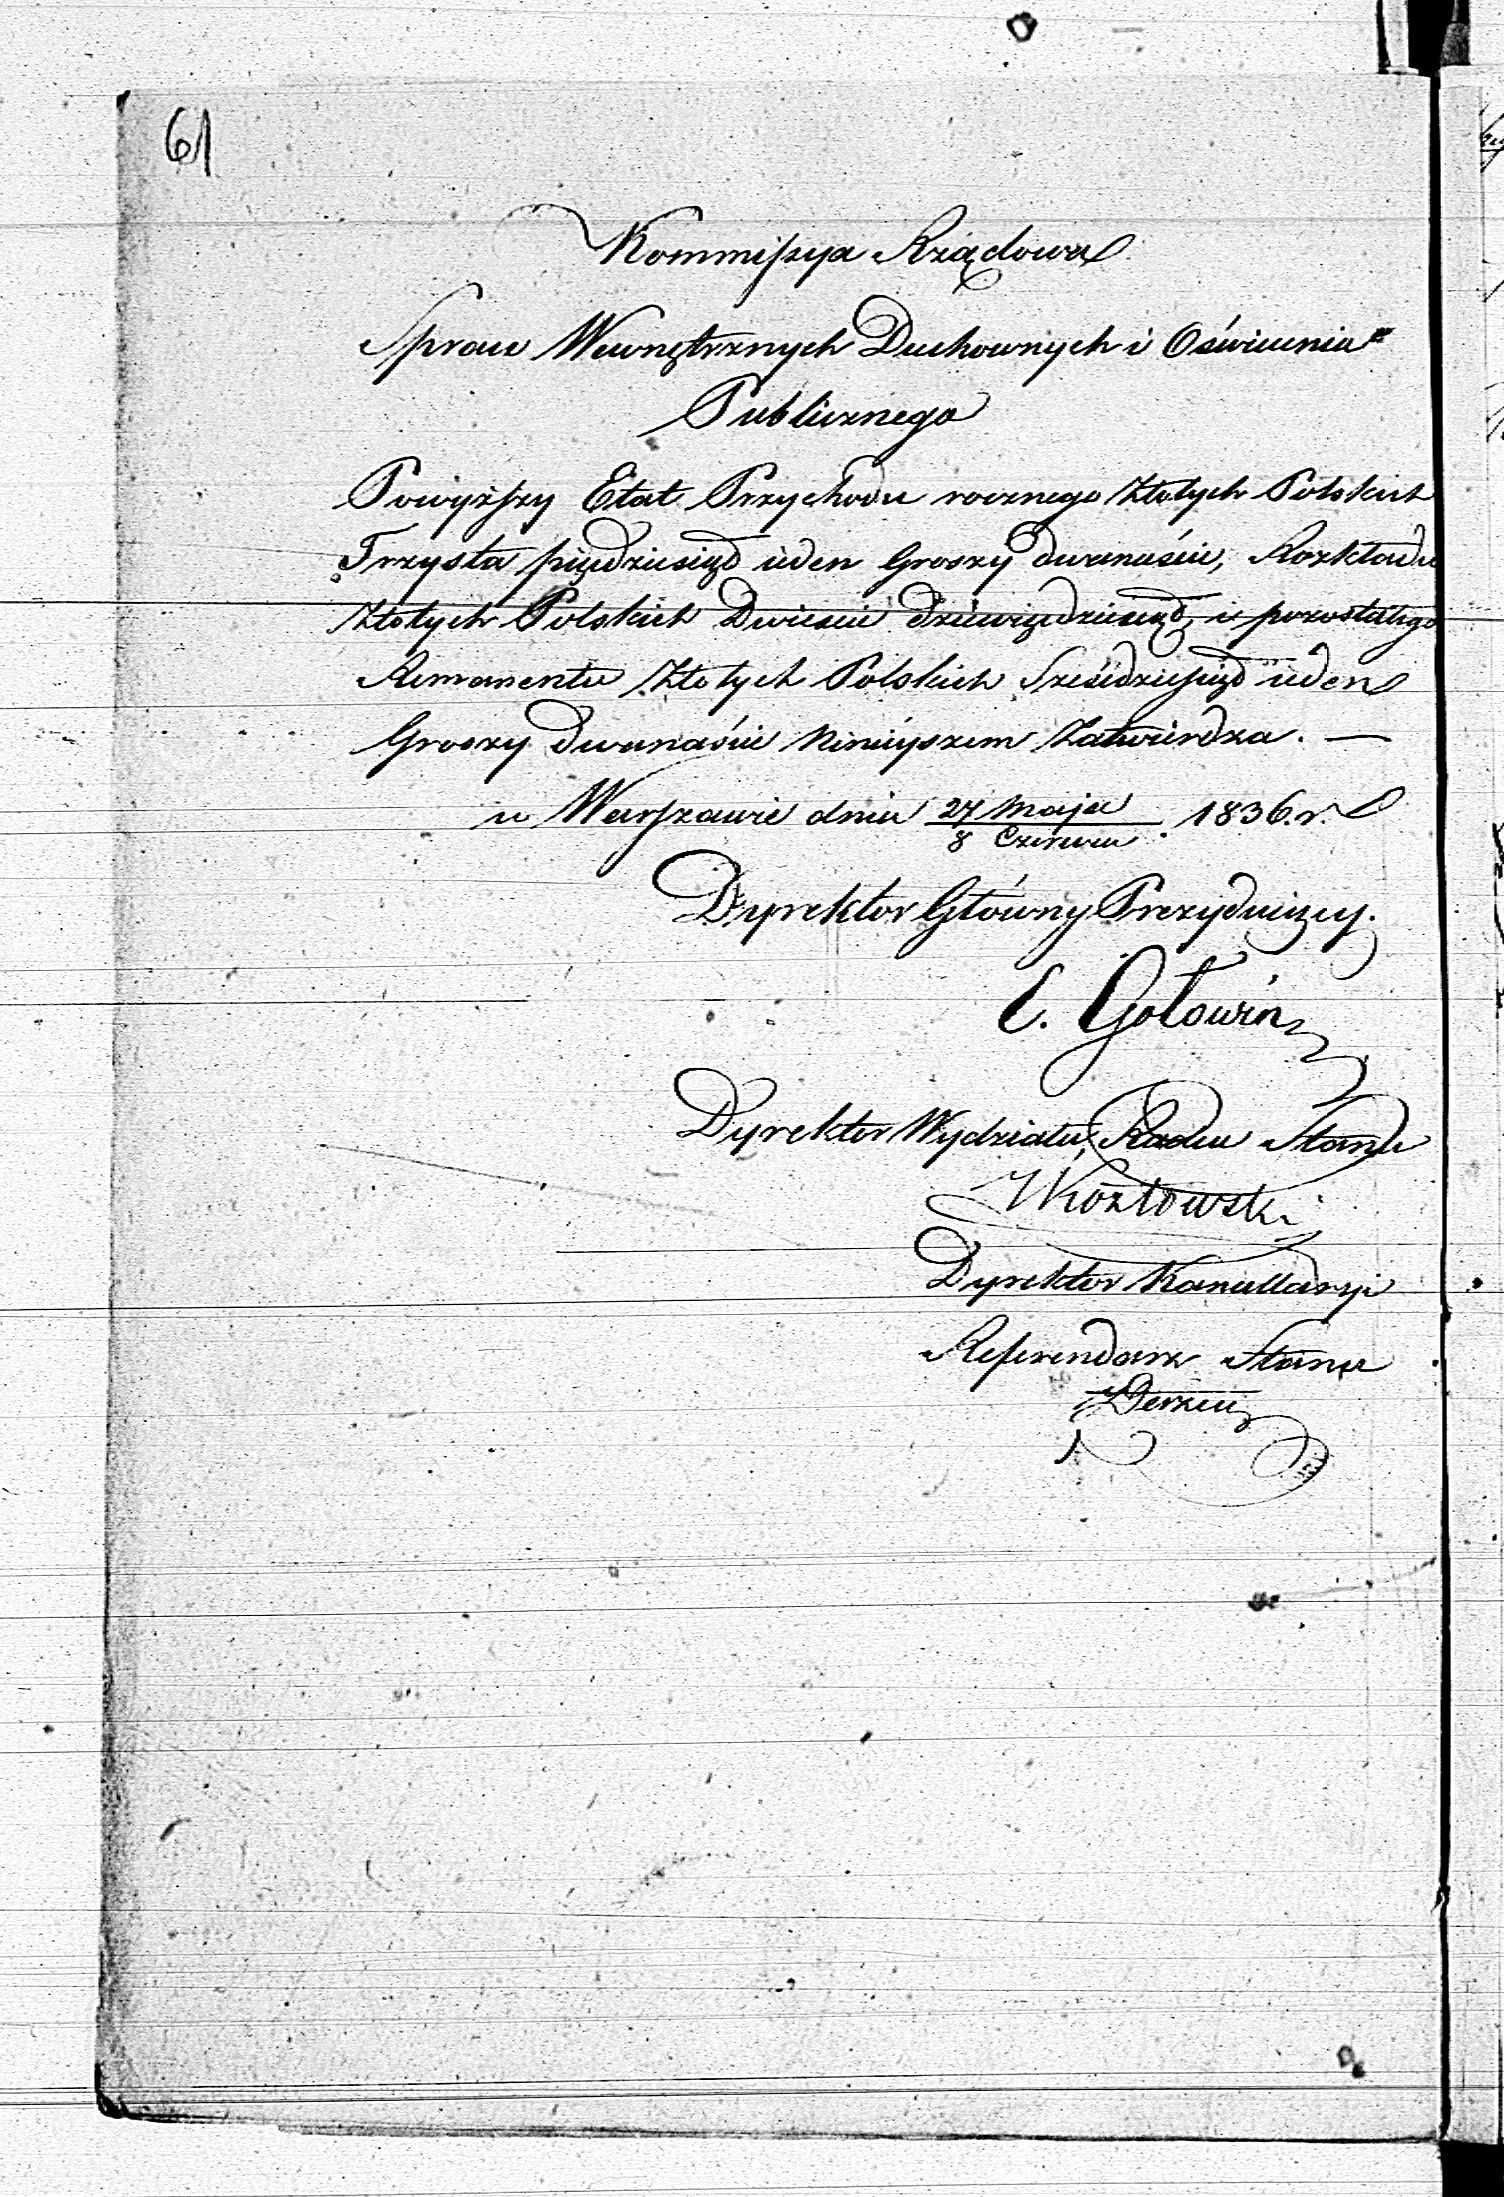 61
Kommissya Rządowa
Spraw Wewnętrznych Duchownych i Oświecenia
Publicznego
Powyższy Etat Przychodu rocznego Złotych Polskich
Trzysta pięćdziesiąd ieden Groszy dwanaście, Rozkładu
Złotych Polskich Dwieście dziewięćdziesiąd, i pozostałego
Remanentu Złotych Polskich Sześćdziesiąd ieden
Groszy dwanaście Ninieyszem Zatwierdza. —
w Warszawie dnia 27 Maja / 8 Czerwca 1836. r.
Dyrektor Główny Prezyduiący.
E. Gołowin
Dyrektor Wydziału, Radca Stanu
Kozłowski
Dyrektor Kancellaryi
Referendarz Stanu